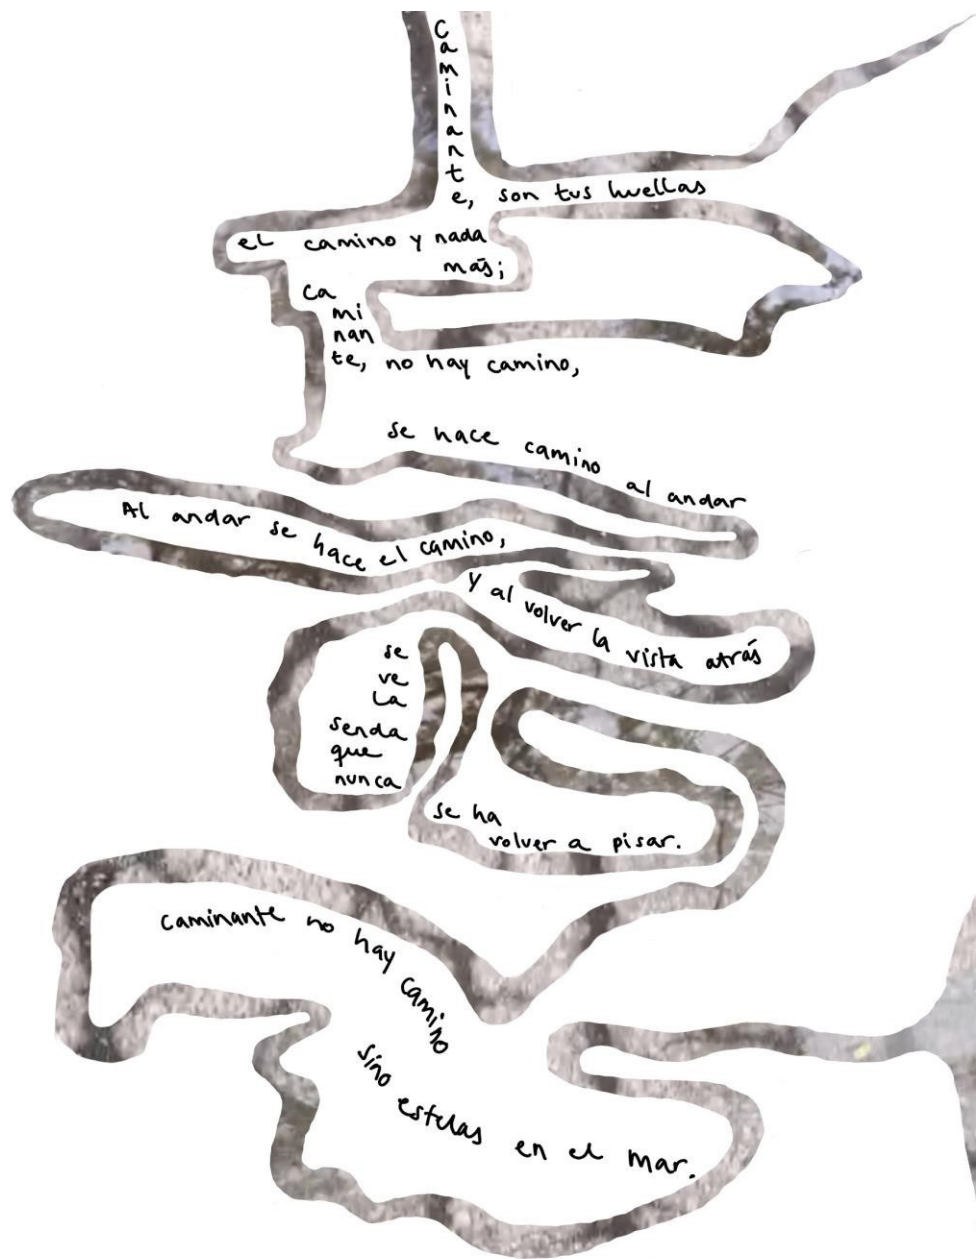 Caminante, son tus huellas
el camino y nada
más;
Ca
mi
nan
te, no hay camino,
se hace camino al andar
Al andar se hace el camino,
y al volver la vista atrás
se
ve
la
senda
que
nunca
se ha
volver a pisar.
caminante no hay camino
sino estelas en el mar.